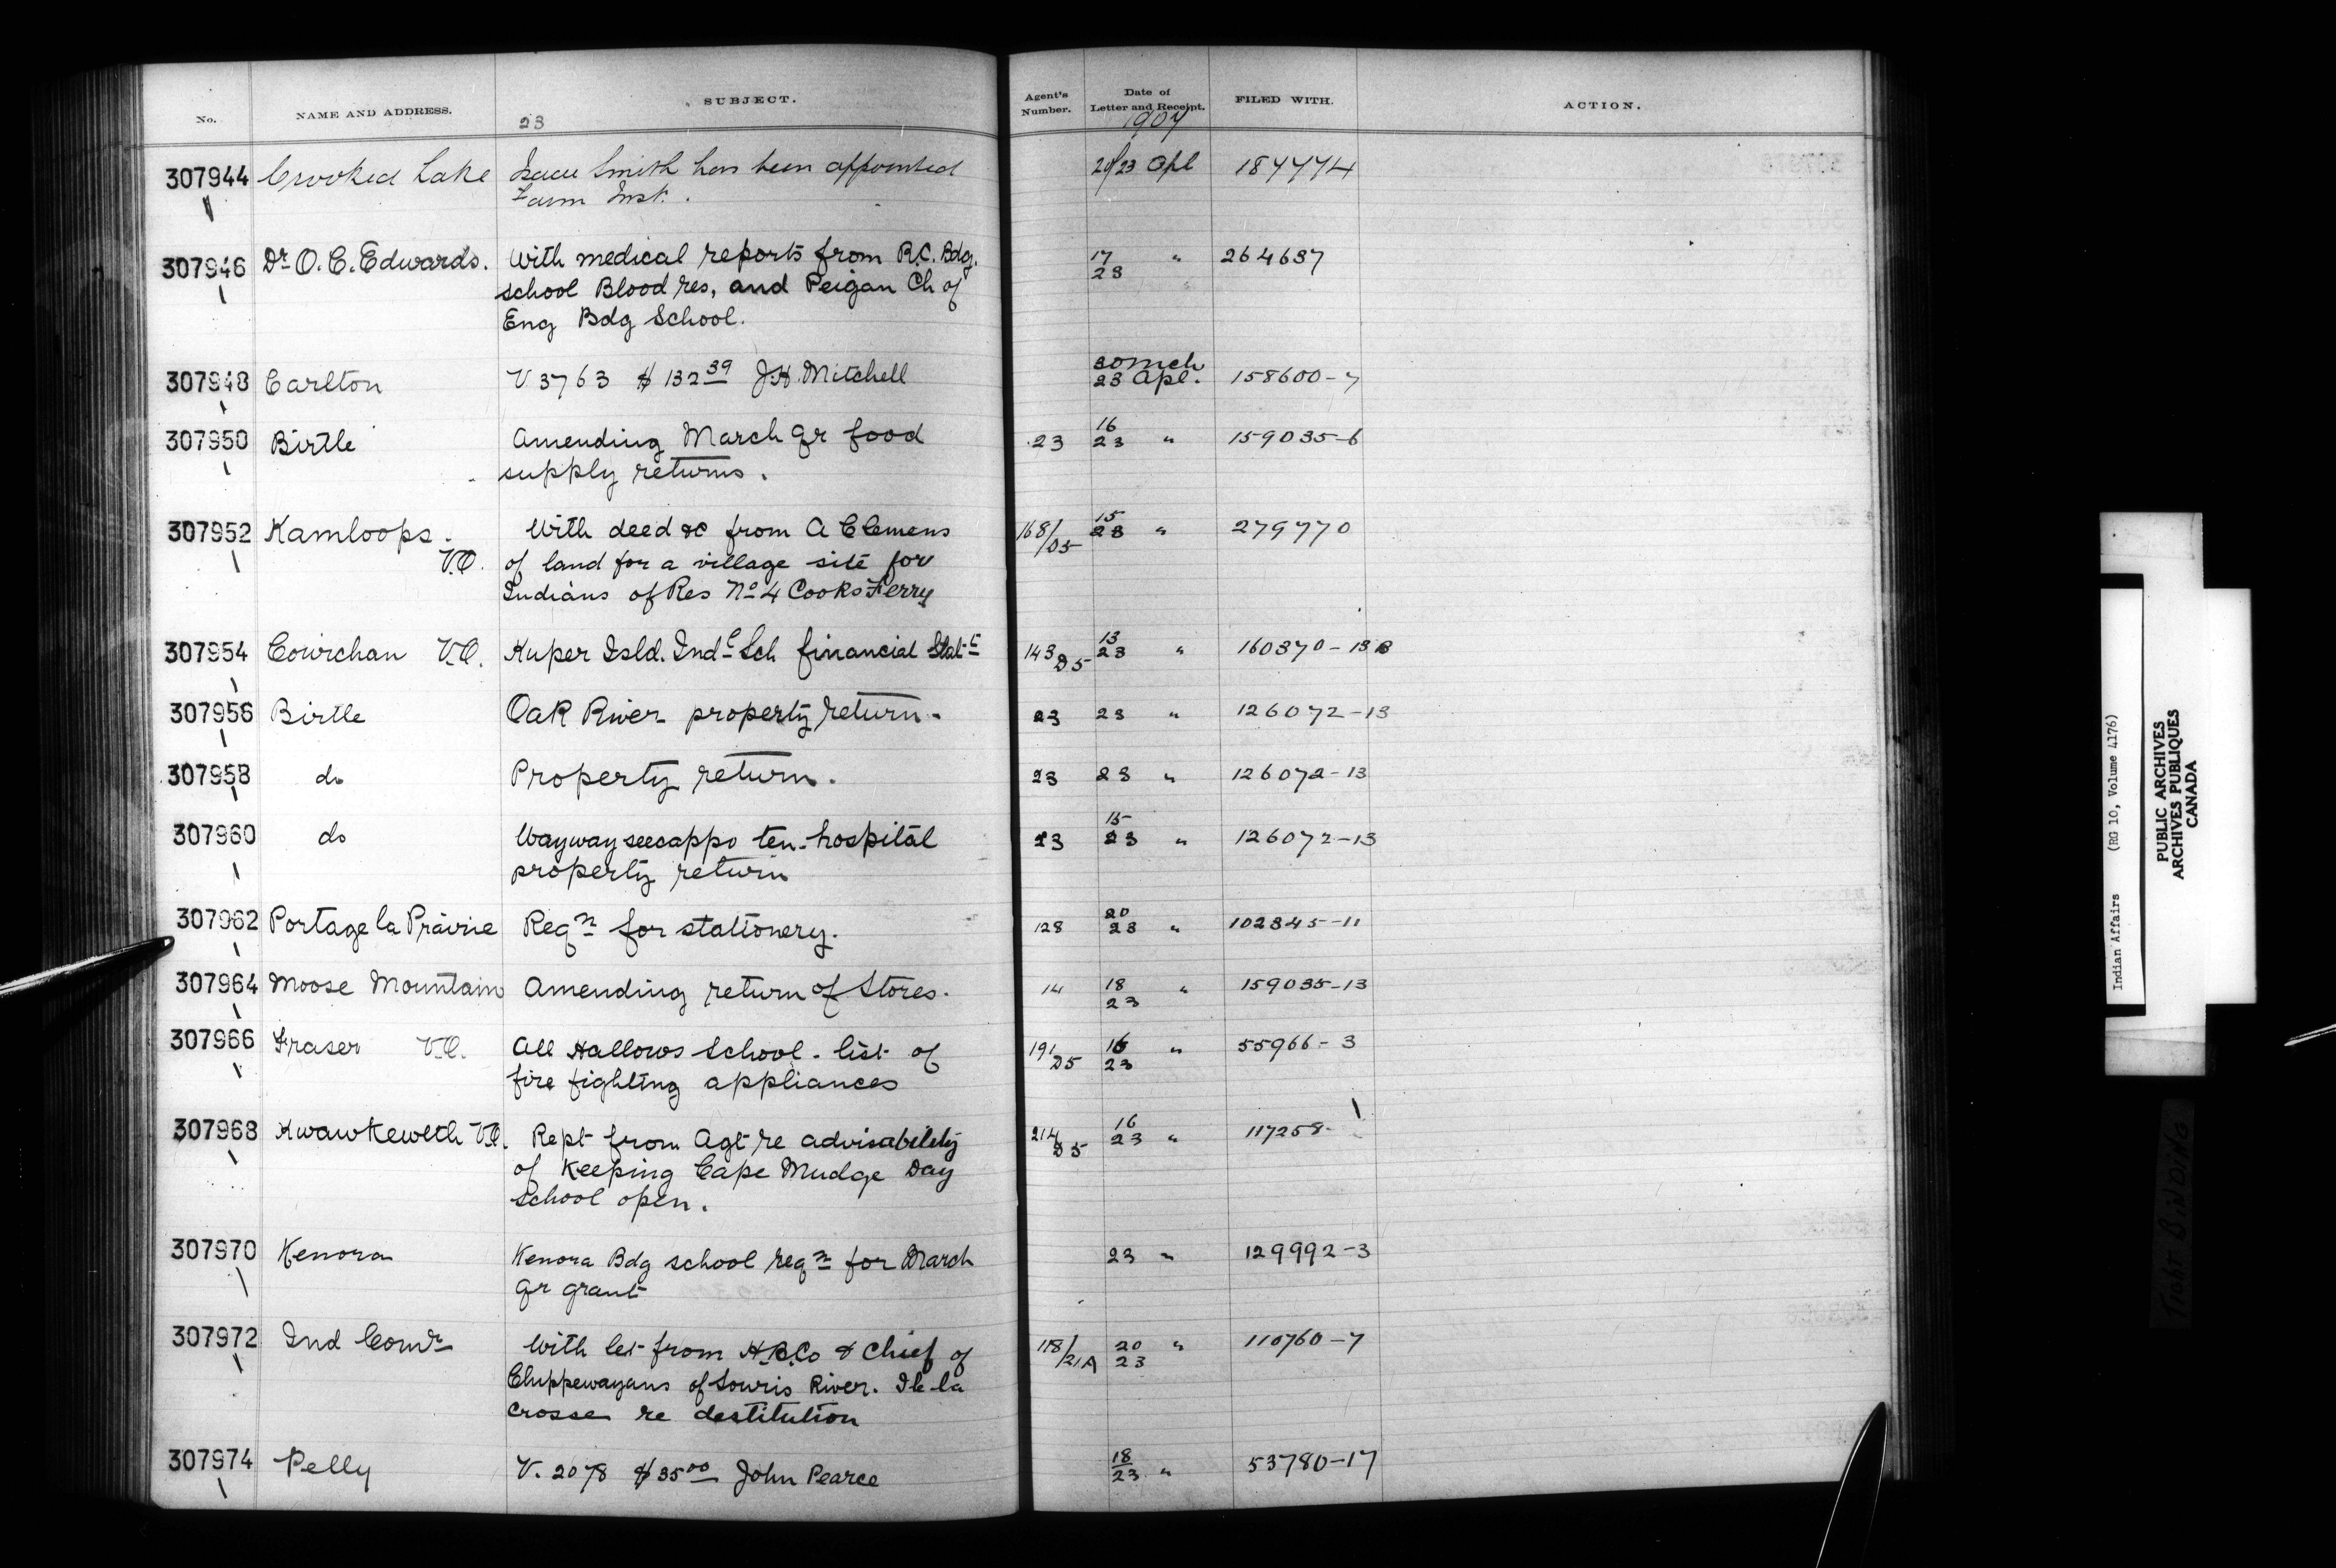 No. NAME AND ADDRESS. SUBJECT. Agent's Number. Date of Letter and Receipt. FILED WITH. ACTION.
23 1907
307944 Crooked Lake Isaac Smith has been appointed 20/23 Apl 187474
Farm Inst.
307946 Dr. O. C. Edwards. With medical reports from R.C. Bdg. 17 " 264687
school Blood res, and Peigan Ch of 23
Eng Bdg School.
30 Mch
307948 Carlton V 3763 $132 39 J.H. Mitchell 23 Apl. 158600-7
16
307950 Birtle Amending March qr food 23 23 " 159035-6
supply returns.
15
307952 Kamloops. With deed &c from A Clemens 168/D5 23 " 279770
V.O. of land for a village site for
Indians of Res No 4 Cooks Ferry
13
307954 Cowichan V.O. Kuper Isld. Indl Sch financial Stat-t 143 D5 23 " 160370-13B
307956 Birtle Oak River property return. 23 23 " 126072-13
307958 do Property return. 23 23 " 126072-13
15
307960 do Waywayseecappo ten-hospital 23 23 " 126072-13
property return
20
307962 Portage la Prairie Reqn for stationery. 128 23 " 102345-11
307964 Moose Mountain Amending return of Stores. 14 18 " 159035-13
23
307966 Fraser V.O. All Hallows School - list of 191 D5 16 " 55966-3
fire fighting appliances 23
16
307968 Kwawkewlth V.O. Rept from Agt re advisability 214 D5 23 " 117258-
of keeping Cape Mudge Day
school open.
307970 Kenora Kenora Bdg school reqn for March 23 " 129992-3
qr grant
307972 Ind Comr With let from H.B.Co & Chief of 118/21A 20 " 110760-7
Chippewayans of Souris River. Ile la 23
Crosse re destitution
18
307974 Pelly V. 2078 $35 00 John Pearce 23 " 53780-17
Indian Affairs (RG 10, Volume 4176)
PUBLIC ARCHIVES
ARCHIVES PUBLIQUES
CANADA
TIGHT BINDING